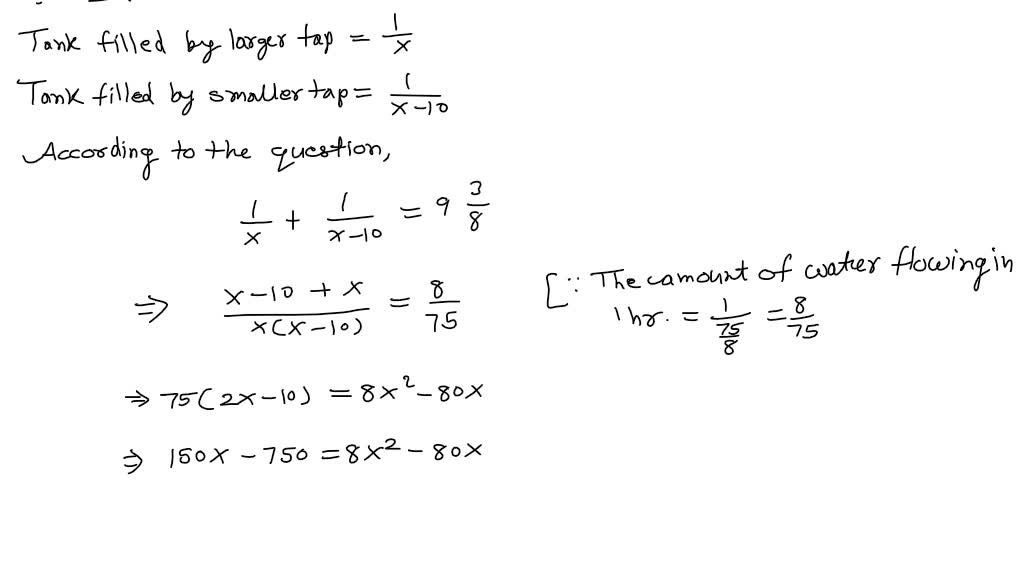 Tank filled by larger tap = 1/x
Tank filled by smaller tap = 1/(x-10)
According to the question,
1/x + 1/(x-10) = 9 3/8
⇒ (x-10+x)/(x(x-10)) = 8/75
[∵ The camount of water flowing in
1 hr. = 1/(75/8) = 8/75
⇒ 75(2x-10) = 8x²-80x
⇒ 150x-750 = 8x²-80x